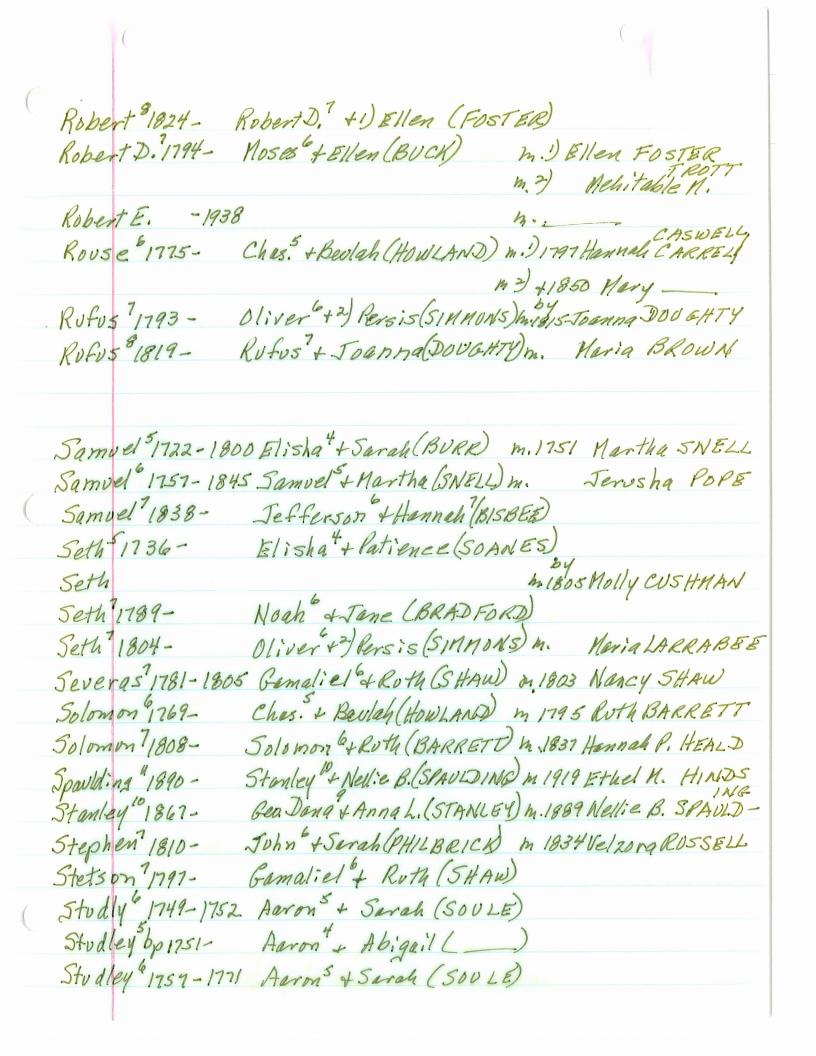 Robert⁸ 1824- Robert D.⁷ +1) Ellen (FOSTER)
Robert D.⁷ 1794- Moses⁶ + Ellen (BUCK) m. 1) Ellen FOSTER
TROTT
m. 2) Mehitable N.
Robert E. -1938 m. ______
CASWELL
Rouse⁶ 1775- Chas.⁵ + Beulah (HOWLAND) m. 1) 1797 Hannah CARRELL
m 2) +1850 Mary ______
by
Rufus⁷ 1793- Oliver⁶ +2) Persis (SIMMONS) m. 1815 Joanna DOUGHTY
Rufus⁸ 1819- Rufus⁷ + Joanna (DOUGHTY) m. Maria BROWN
Samuel⁵ 1722-1800 Elisha⁴ + Sarah (BURR) m. 1751 Martha SNELL
Samuel⁶ 1757-1845 Samuel⁵ + Martha (SNELL) m. Jerusha POPE
Samuel⁷ 1838- Jefferson⁶ + Hannah⁷ (BISBEE)
Seth⁵ 1736- Elisha⁴ + Patience (SOANES)
by
Seth m. 1805 Molly CUSHMAN
Seth⁷ 1789- Noah⁶ + Jane (BRADFORD)
Seth⁷ 1804- Oliver⁶ +2) Persis (SIMMONS) m. Maria LARRABEE
Severas⁷ 1781-1805 Gamaliel⁶ + Ruth (SHAW) m. 1803 Nancy SHAW
Solomon⁶ 1769- Chas.⁵ + Beulah (HOWLAND) m 1795 Ruth BARRETT
Solomon⁷ 1808- Solomon⁶ + Ruth (BARRETT) m. 1837 Hannah P. HEALD
Spaulding¹¹ 1890- Stanley¹⁰ + Nellie B. (SPAULDING) m 1919 Ethel M. HINDS
ING
Stanley¹⁰ 1867- Geo Dana⁹ + Anna L. (STANLEY) m. 1889 Nellie B. SPAULD-
Stephen⁷ 1810- John⁶ + Sarah (PHILBRICK) m 1834 Velzora RUSSELL
Stetson⁷ 1797- Gamaliel⁶ + Ruth (SHAW)
Studly⁶ 1749-1752 Aaron⁵ + Sarah (SOULE)
Studley⁵ bp 1751- Aaron⁴ + Abigail (______)
Studley⁶ 1757-1771 Aaron⁵ + Sarah (SOULE)